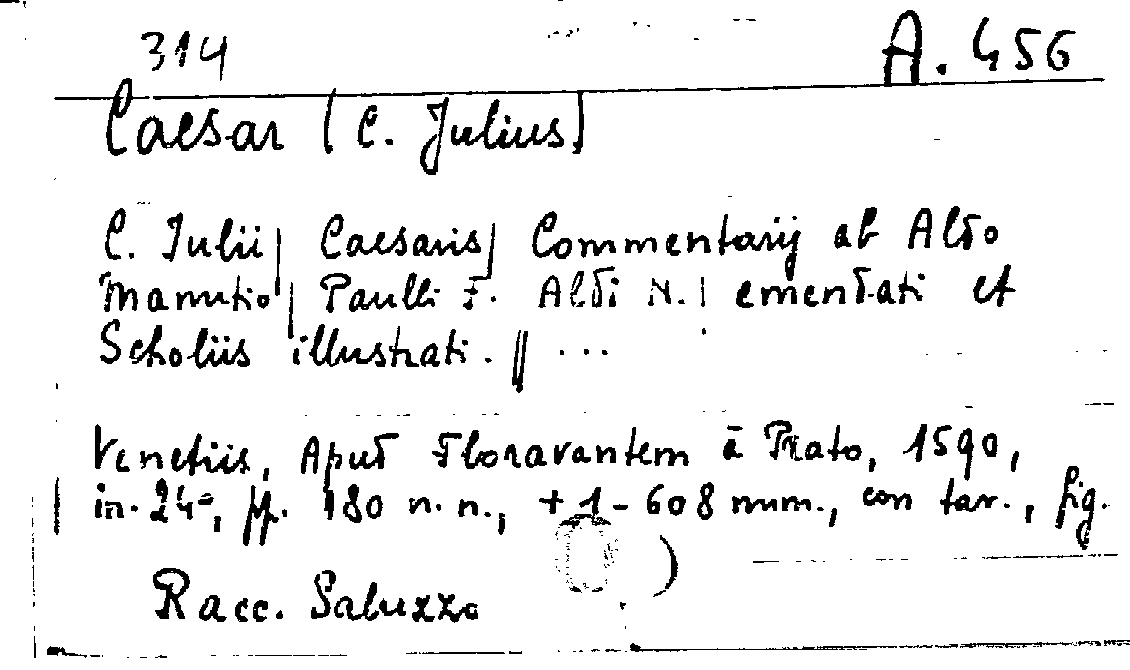 314 A. 456
Caesar (C. Julius)
C. Iulii| Caesaris| Commentarij ab Aldo
Manutio| Paulli F. Aldi N.| emendati et
Scholiis illustrati. || ...
Venetiis, Apud Floravantem à Prato, 1590,
in-24°, pp. 180 n.n., + 1-608 num., con tav., fig.
Racc. Saluzzo